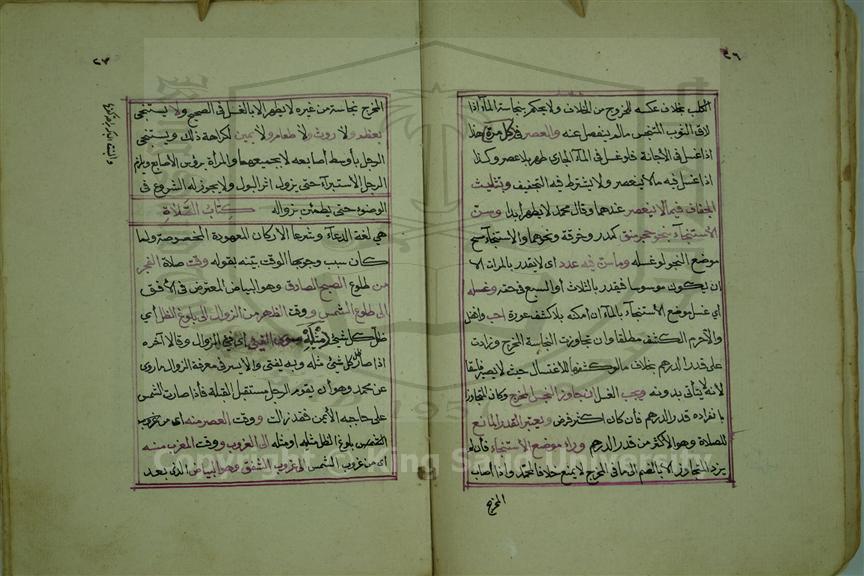 ٢٦
الكلب بخلاف عكسه للخروج من الخلاف ولا يحكم بنجاسة الماء اذا
لاقى الثوب المتنجس مالم ينفصل عنه والعصر في كل مرة هذا
اذا غسل في الاجانة فلو غسل في الماء الجاري طهر بلا عصر وكذا
اذا غسل فيه مالا ينعصر ولا يشترط فيه التجفيف وبتثليث
الجفاف فيما لا ينعصر عندهما وقال محمد لا يطهر ابدا وسن
الاستنجاء بنحو حجر منق كمدر وخرقة ونحوهما والاستنجاء مسح
موضع النجو او غسله وماسن فيه عدد اى لايقدر بالمرات الا
ان يكون موسوسا فيقدر بالثلاث أو السبع في حقه وغسله
اي غسل موضع الاستنجاء بالماء ان امكنه بلا كشف عورة احب وافضل
والا حرم الكشف مطلقا وان تجاوزت النجاسة المخرج وزادت
على قدر الدرهم بخلاف مالو كشفها للاغتسال حيث لا يصير فاسقا
لانه لا يتأتى بدونه ويجب الغسل ان جاوز النجس المخرج وكان المتجاوز
بانفراده قدر الدرهم فأن كان اكثر فرض ويعتبر القدر المانع
للصلاة وهو الاكثر من قدر الدرهم وراء موضع الاستنجاء فأن لم
يزد المتجاوز الا بالضم لما في المخرج لا يمنع خلافا لمحمد واذا اصاب
المخرج
٢٧
المخرج نجاسة من غيره لا يطهر الا بالغسل في الصحيح ولا يستنجى
بعظم ولا روث ولا طعام ولا يمين لكراهة ذلك ويستنجى
الرجل بأوسط أصابعه لا بجميعها والمرأة برؤس الاصابع ويلزم
الرجل الاستبراء حتى يزول اثر البول ولا يجوز له الشروع في
الوضوء حتى يطمئن بزواله كتاب الصلاة
هي لغة الدعاء وشرعا الاركان المعهودة المخصوصة ولما
كان سبب وجوبها الوقت بينه بقوله وقت صلاة الفجر
من طلوع الصبح الصادق وهو البياض المعترض في الأفق
الى طلوع الشمس ووقت الظهر من الزوال الى بلوغ الظل أي
ظل كل شئ مثليه سوى الفيئ أي فيئ الزوال وقالا آخره
اذا صار ظل كل شئ مثله وبه يفتى والايسر في معرفة الزوال ماروى
عن محمد وهو أن يقوم الرجل مستقبل القبلة فأذا صارت الشمس
على حاجبه الأيمن فقد زالت ووقت العصر منه اى من
بلوغ الظل مثليه او مثله الى الغروب ووقت المغرب منه
اى من غروب الشمس الى غروب الشفق وهو البياض الذى بعد
Copyright © King Saud University
195